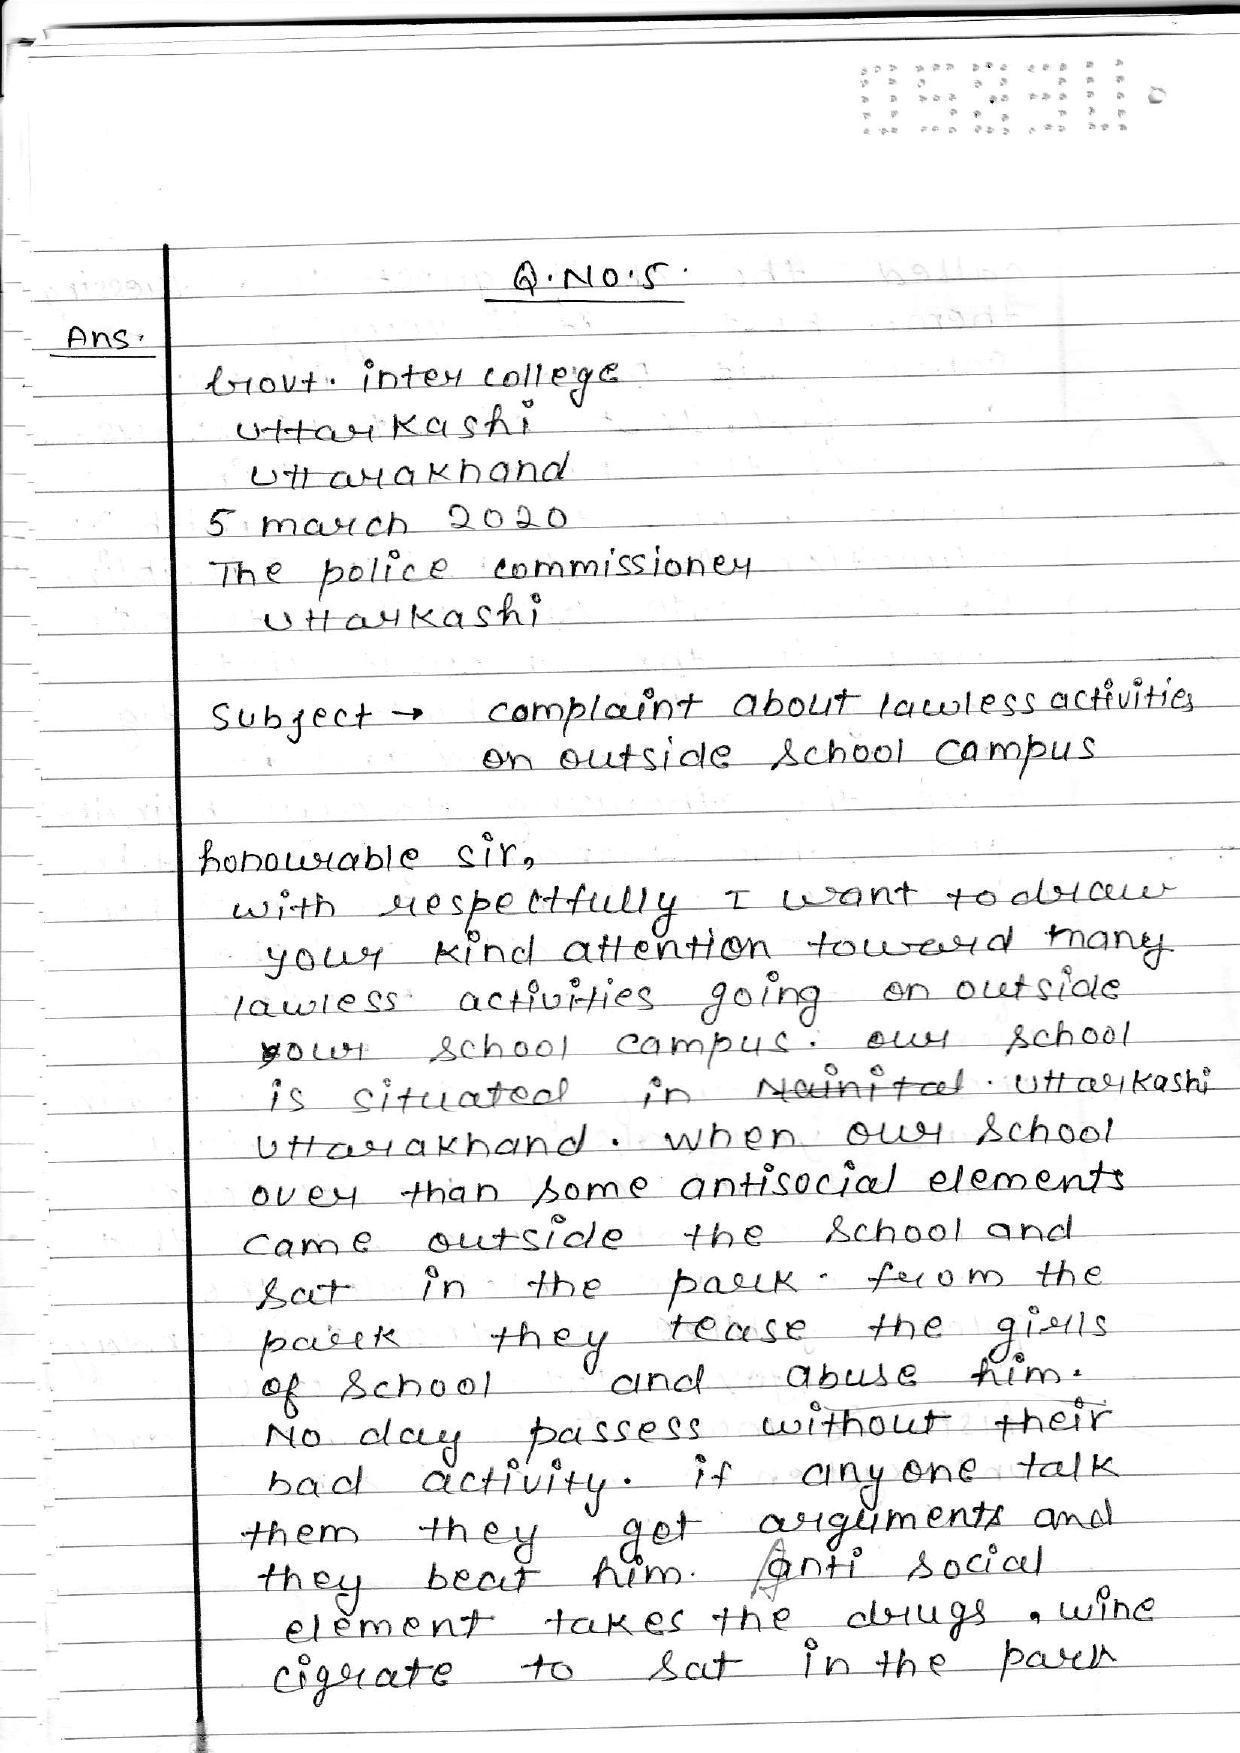 Q.No.5.
Ans.
Govt. inter college
Uttarkashi
Uttarakhand
5 march 2020
The police commissioner
Uttarkashi
Subject → complaint about lawless activities
on outside school campus
honourable sir,
with respectfully I want to draw
your kind attention toward many
lawless activities going on outside
your school campus. our school
is situated in Nainital. Uttarkashi
Uttarakhand. when our school
over than some antisocial elements
came outside the school and
sat in the park. from the
park they tease the girls
of school and abuse him.
No day passess without their
bad activity. if any one talk
them they get arguments and
they beat him. Anti social
element takes the drugs, wine
cigrate to sat in the park